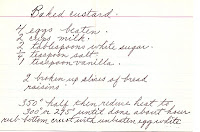 Baked custard.
4 eggs beaten.
2 cups milk.
2 tablespoons white sugar.
1/2 teaspoon salt.
1 teaspoon vanilla.
2 broken up slices of bread
raisins
350° half then reduce heat to
300 or 275° until done about hour
rub bottom crust with unbeaten egg white